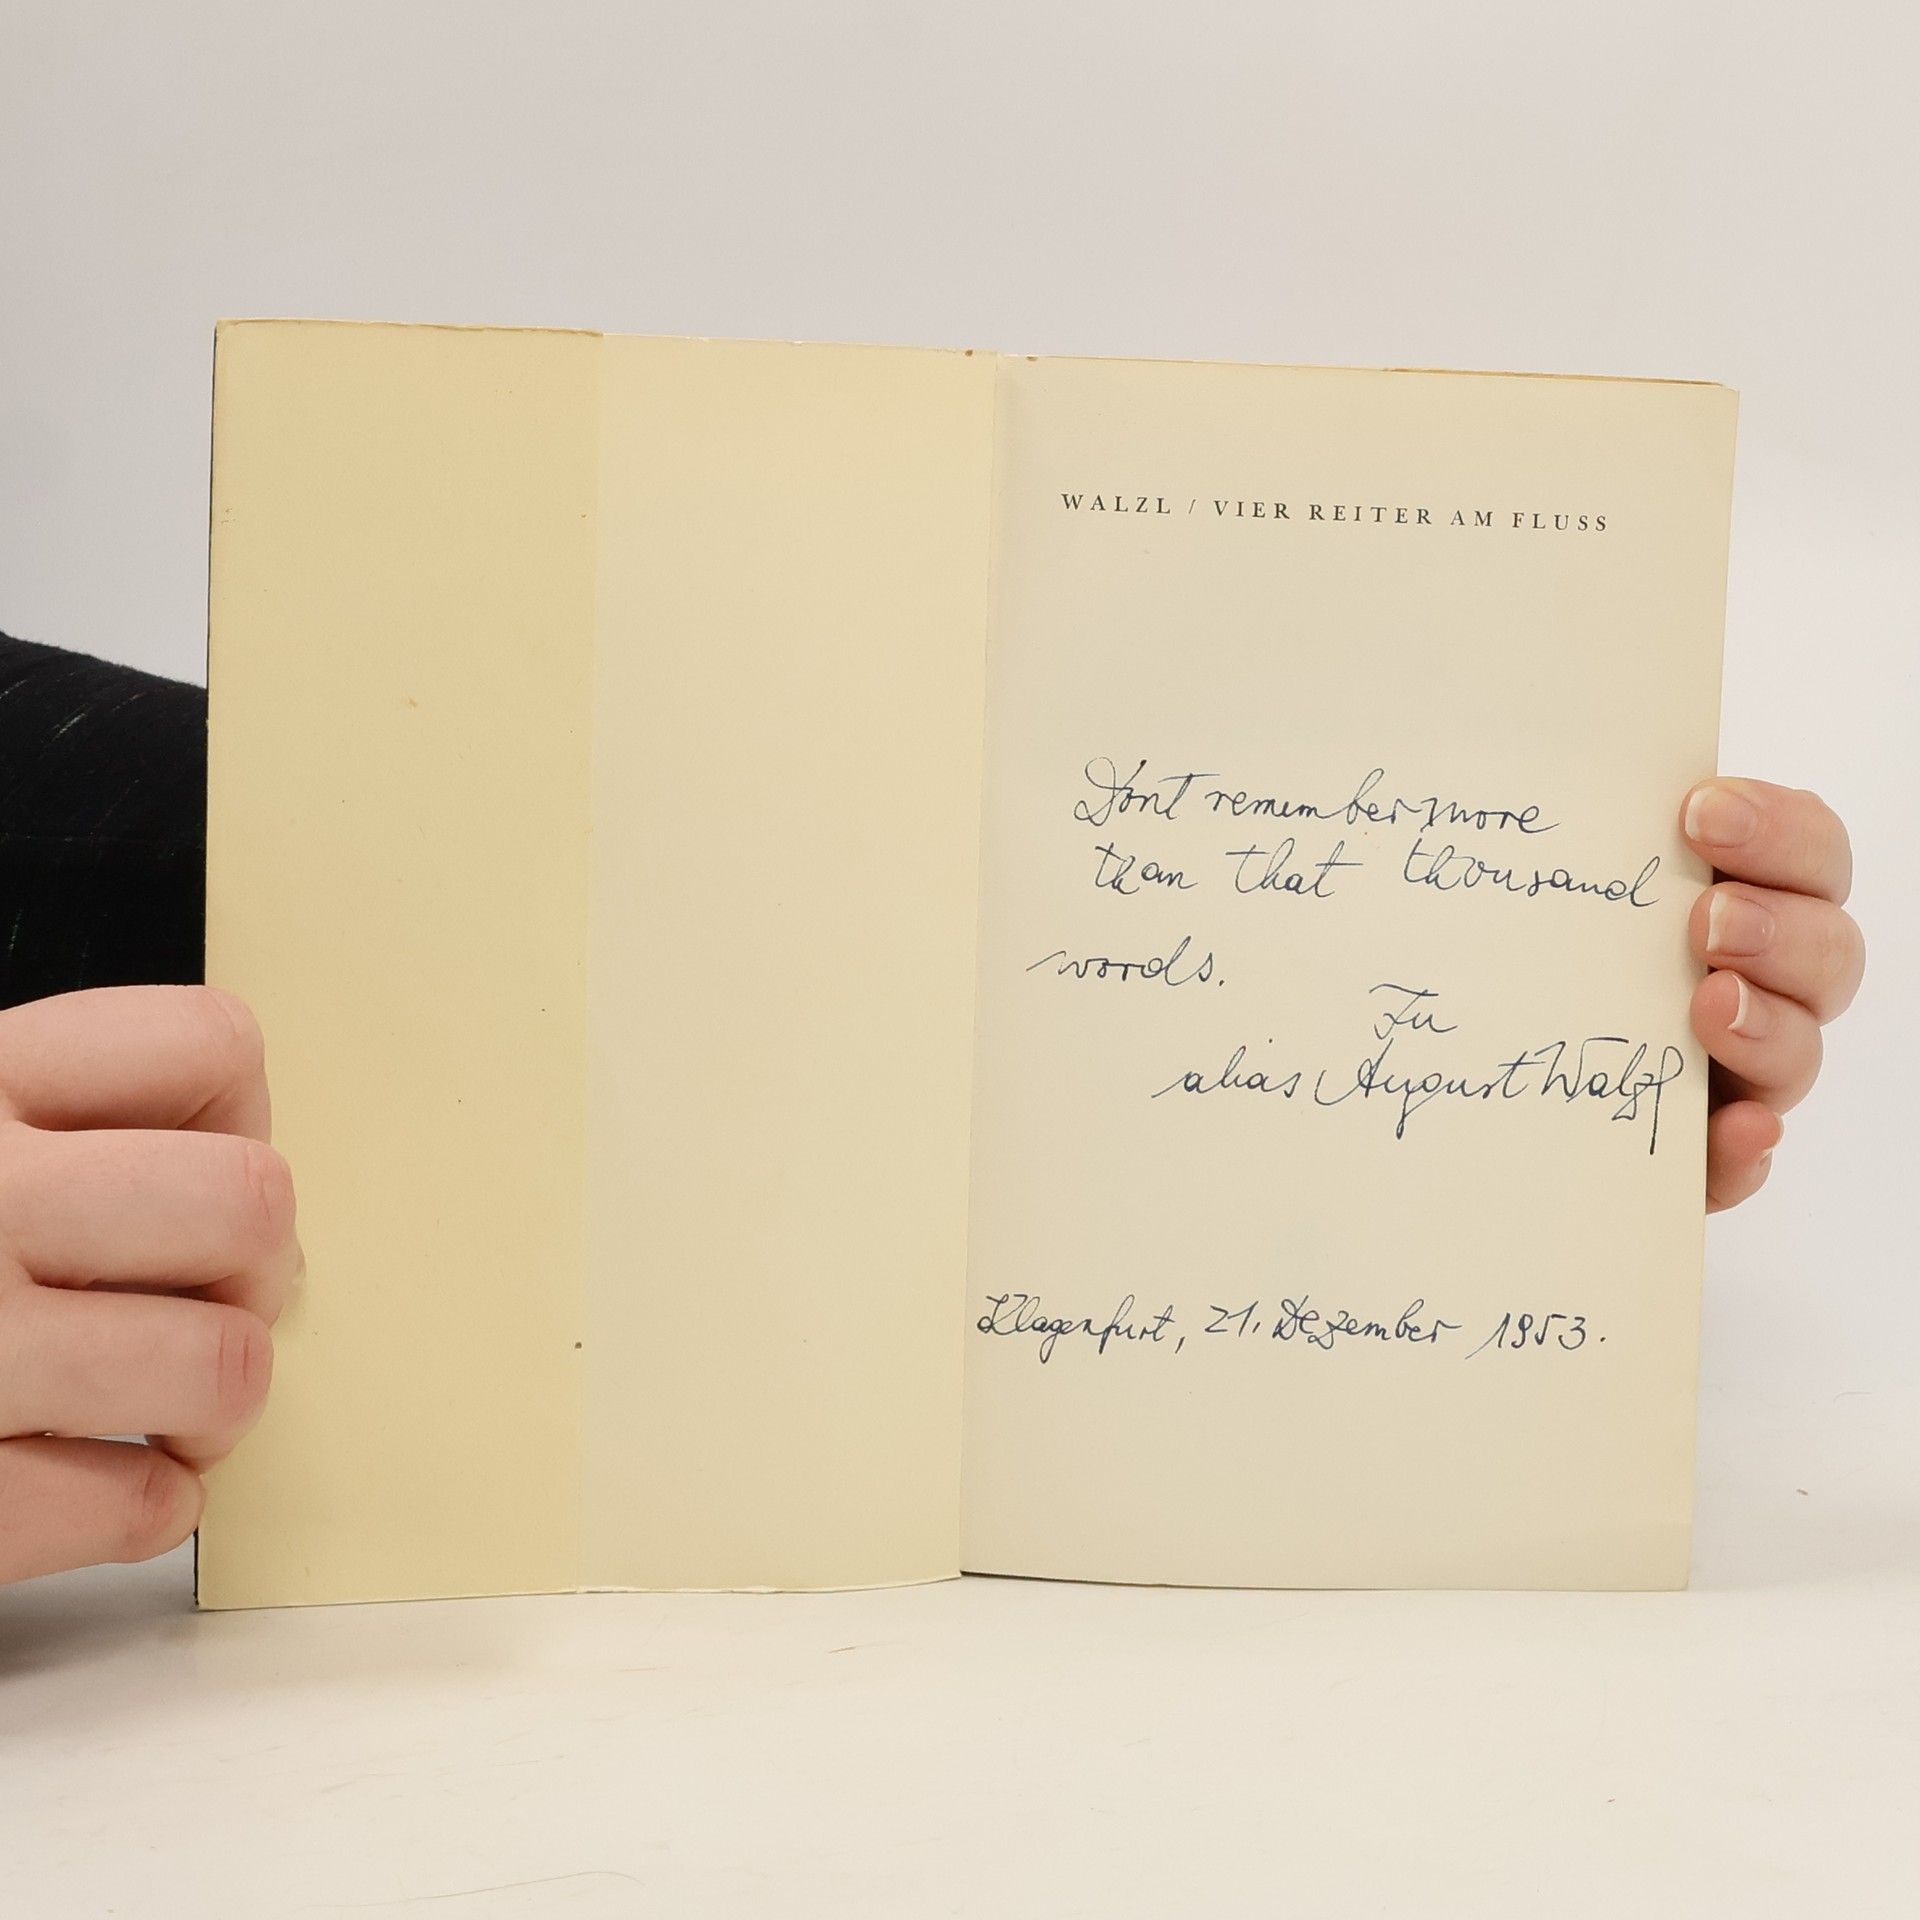 WALZL / VIER REITER AM FLUSS
Dont remember more
than that thousand
words.
Fu
alias August Walzl
Klagenfurt, 21. Dezember 1953.